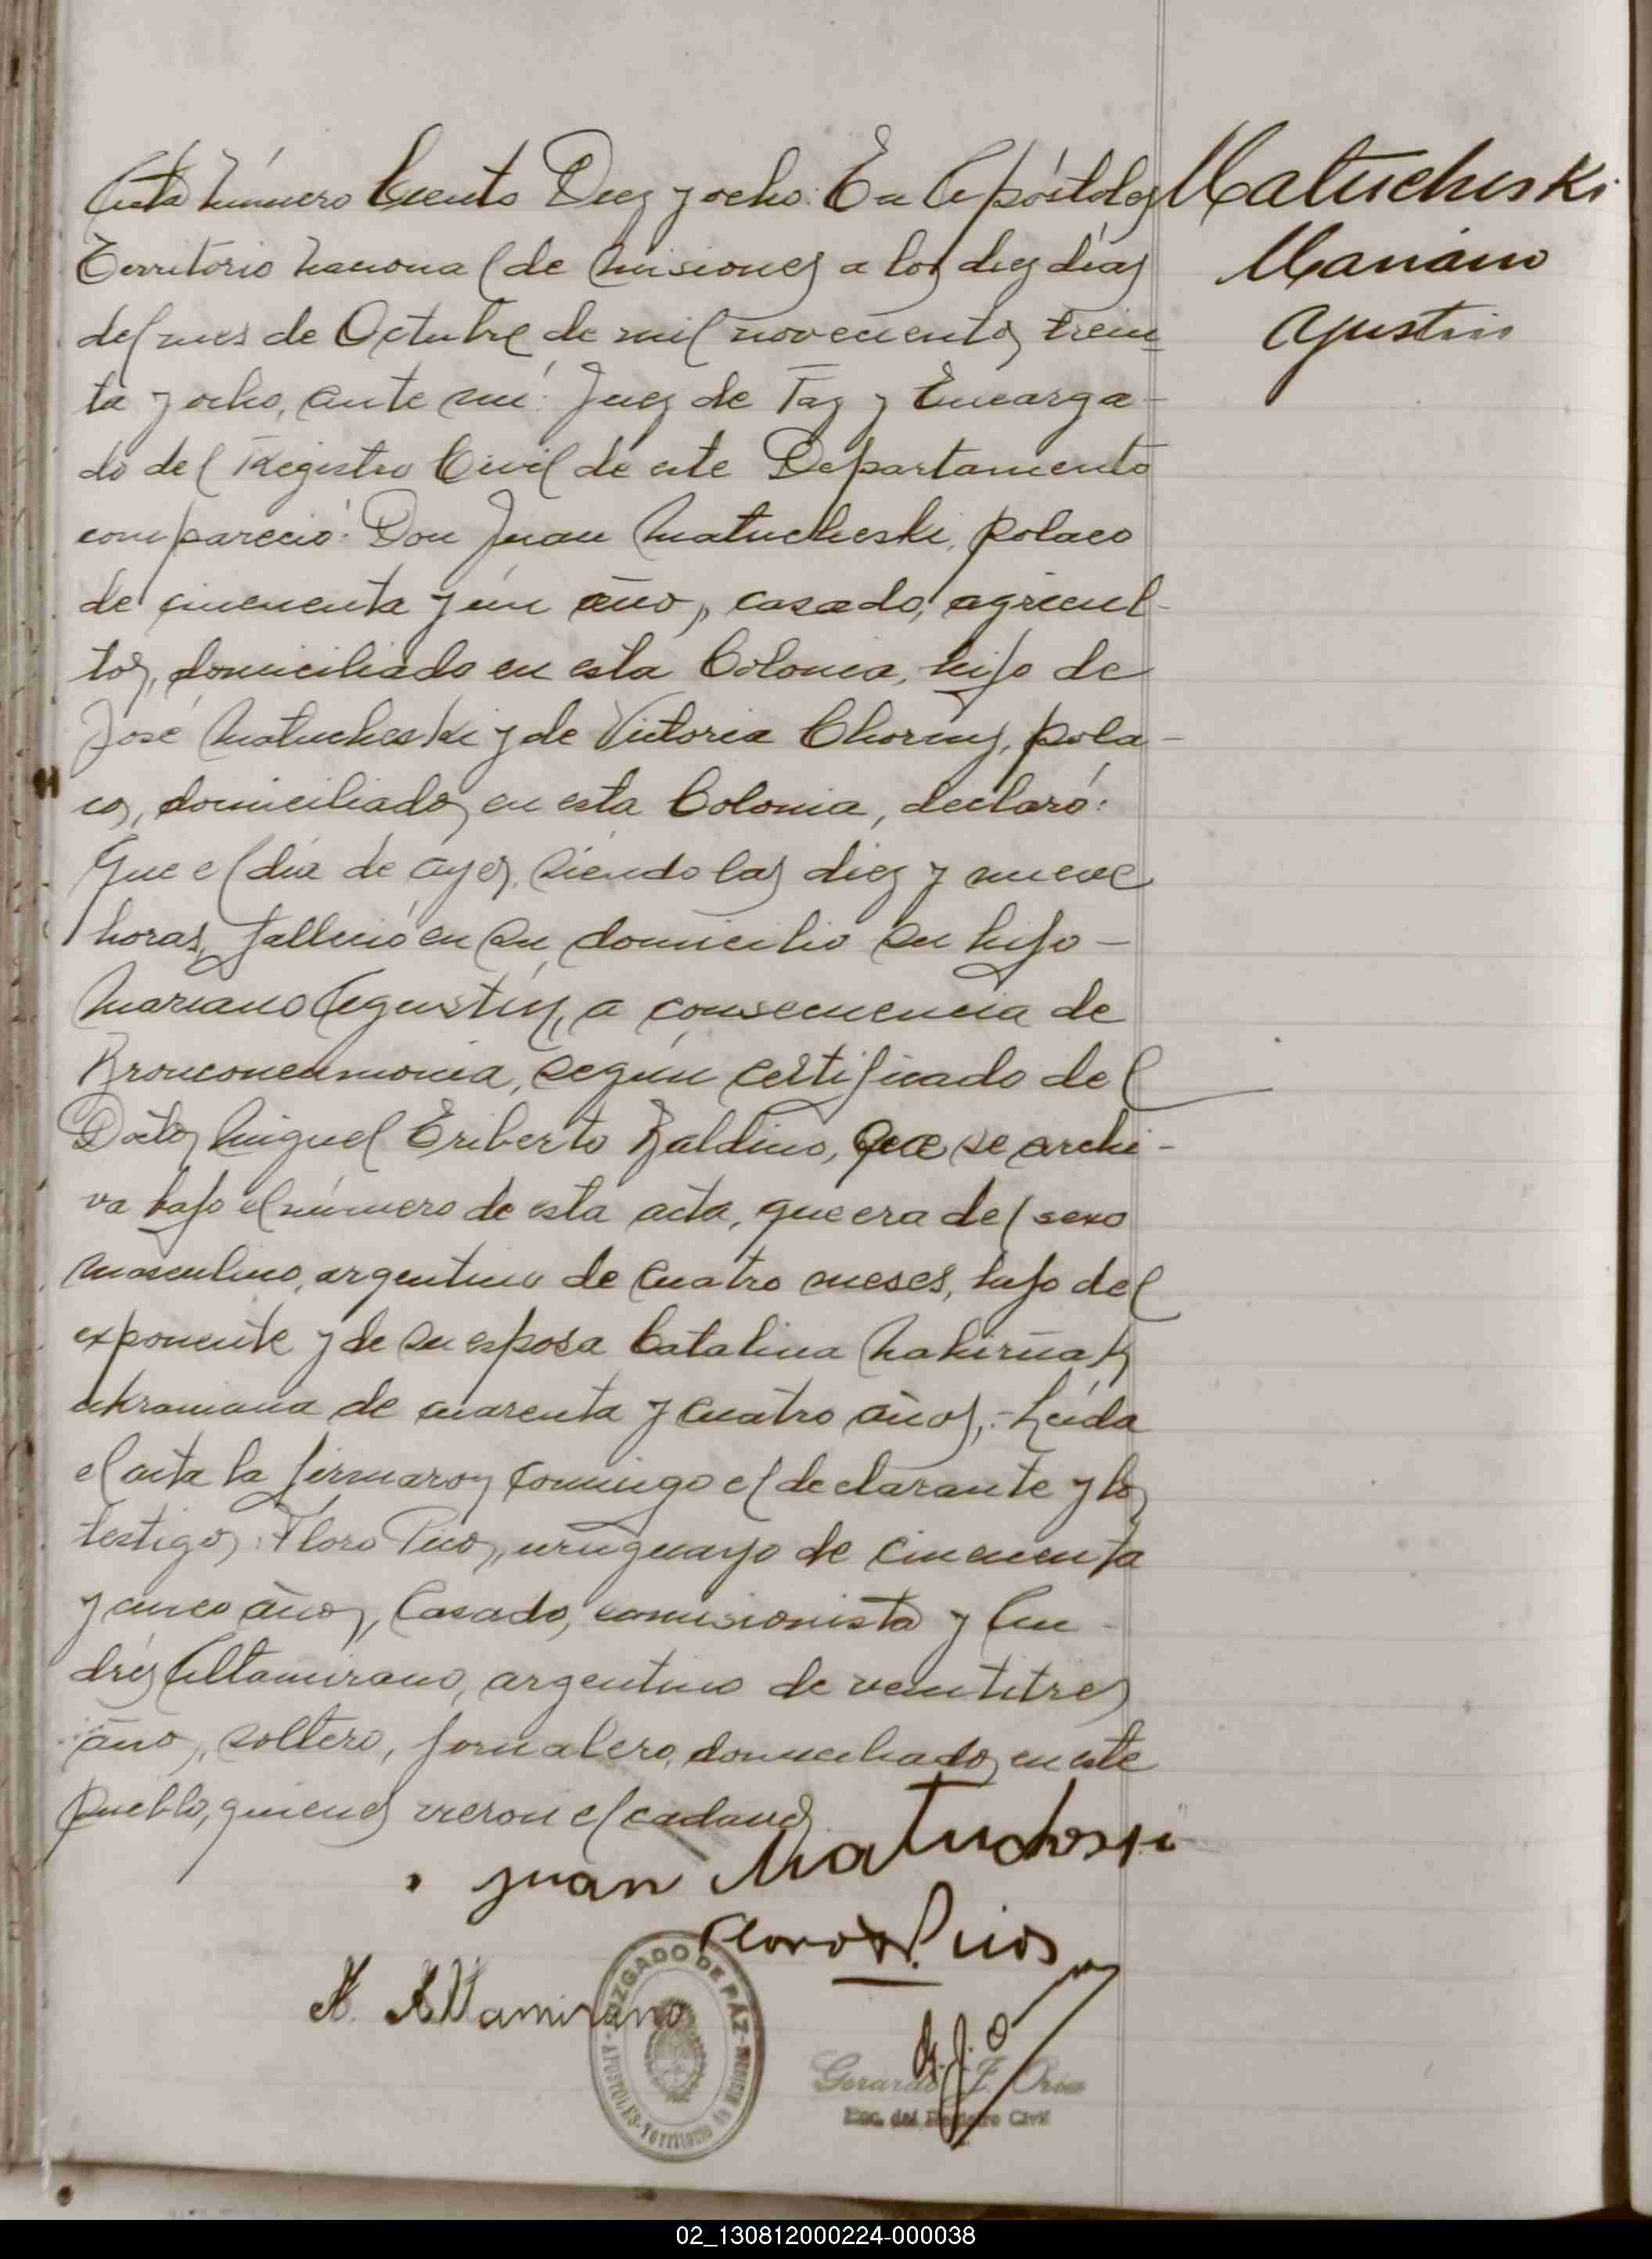 Acta Número Ciento Diez y ocho: En Apóstoles
Territorio Nacional de Misiones a los diez días
del mes de Octubre de mil novecientos trein-
ta y ocho, ante mí: Juez de Paz y Encarga-
do del Registro Civil de este Departamento
compareció: Don Juan Matucheski, polaco
de cincuenta y un años, casado, agricul-
tor, domiciliado en esta Colonia, hijo de
José Matucheski y de Victoria Chorny, pola-
cos, domiciliados en esta Colonia, declaró:
Que el día de ayer, siendo las diez y nueve
horas, falleció en su domicilio su hijo -
Mariano Agustín, a consecuencia de
Bronconeumonia, según certificado del
Doctor Miguel Eriberto Baldino, que se archi-
va bajo el número de esta acta, que era del sexo
masculino, argentino de cuatro meses, hijo del
exponente y de su esposa Catalina
ukraniana de cuarenta y cuatro años,.- Leída
el acta la firmaron conmigo el declarante y los
testigos: Floro Picos, uruguayo de cincuenta
y cinco años, casado, comisionista y An-
drés Altamirano, argentino de veintitres
años, soltero, jornalero, domiciliados en este
Pueblo, quienes vieron el cadaver
Matucheski
Mariano
Agustin
Juan Matucheski
Floro Picos
A. Altamirano
JUZGADO DE PAZ
APOSTOLES - Territorio de Misiones
Gerardo
Enc. del Registro Civil
02_130812000224-000038